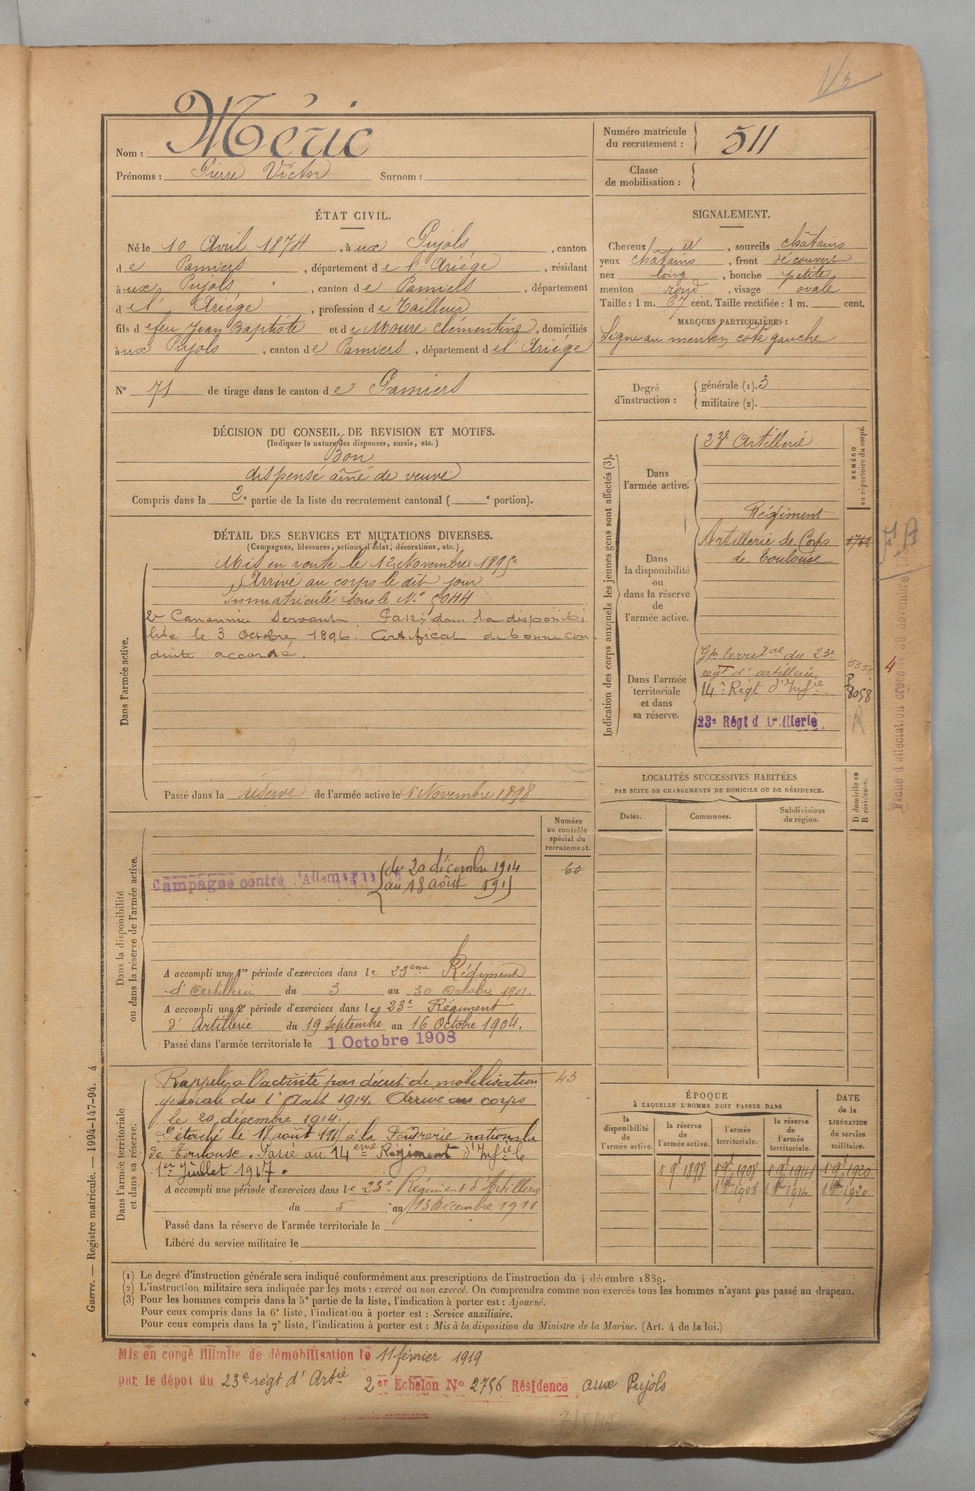 Méric
Nom :
Prénoms : Pierre Victor Surnom :
Numéro matricule du recrutement : 511
Classe de mobilisation :
ÉTAT CIVIL.
Né le 10 Avril 1874, à ux Pujols, canton
d e Pamiers, département d e l'Ariège, résidant
à ux Pujols, canton d e Pamiers, département
d e l' Ariège, profession d e Tailleur
fils d e feu Jean Baptiste et d e Moure Clémentine, domiciliés
à ux Pujols, canton d e Pamiers, département d e l'Ariège
N° 71 de tirage dans le canton d e Pamiers
SIGNALEMENT.
Cheveux, sourcils châtains
yeux châtains, front découvert
nez long, bouche petite,
menton rond, visage ovale
Taille : 1 m. 67 cent. Taille rectifiée : 1 m. cent.
MARQUES PARTICULIÈRES :
Signe au menton côté gauche
Degré d'instruction : générale (1). 3
militaire (2).
DÉCISION DU CONSEIL DE REVISION ET MOTIFS.
(Indiquer la nature des dispenses, sursis, etc.)
Bon
dispensé aîné de veuve
Compris dans la 2e partie de la liste du recrutement cantonal ( e portion).
DÉTAIL DES SERVICES ET MUTATIONS DIVERSES.
(Campagnes, blessures, actions d'éclat, décorations, etc.)
Dans l'armée active.
Mis en route le 12 Novembre 1895
Arrivé au corps le dit jour
Immatriculé sous le N°
2e Canonnier Servant. Passé dans la disponibi
lité le 3 Octobre 1896. Certificat de bonne con
duite accordé.
Passé dans la réserve de l'armée active le 1 Novembre 1898
Indication des corps auxquels les jeunes gens sont affectés (3).
NUMÉRO au répertoire du corps.
Dans l'armée active.
23e Artillerie
Dans la disponibilité ou dans la réserve de l'armée active.
Régiment
Artillerie de Corps
de Toulouse
Dans l'armée territoriale et dans sa réserve.
Gpe territal du 23e
regt d'artillerie
14e Regt d'Infie
23e Régt d'Artillerie
8058
LOCALITÉS SUCCESSIVES HABITÉES
PAR SUITE DE CHANGEMENTS DE DOMICILE OU DE RÉSIDENCE.
D domicile ou R résidence.
Dates. Communes. Subdivisions de région.
Dans la disponibilité ou dans la réserve de l'armée active.
Numéro au contrôle spécial du recrutement.
60
Campagne contre l'Allemagne du 20 décembre 1914
au 18 août
A accompli une 1re période d'exercices dans le 23eme Régiment
d'Artillerie du 3 au 30 Octobre 1901.
A accompli une 2e période d'exercices dans le 23e Régiment
d'Artillerie du 19 Septembre au 16 Octobre 1904.
Passé dans l'armée territoriale le 1 Octobre 1908
Dans l'armée territoriale et dans sa réserve.
Rappelé à l'activité par décret de mobilisation 43
générale du 1er Août 1914. Arrivé au corps
le 20 décembre 1914.
Détaché le août à la Poudrerie nationale
de Toulouse. Passé au 14eme Régiment d'Infie le
1er Juillet 1917.
A accompli une période d'exercices dans le 23e Régiment d'Artillerie
du 5 au 13 Décembre 1911
Passé dans la réserve de l'armée territoriale le
Libéré du service militaire le
ÉPOQUE
À LAQUELLE L'HOMME DOIT PASSER DANS
DATE de la LIBÉRATION du service militaire.
la disponibilité de l'armée active. la réserve de l'armée active. l'armée territoriale. la réserve de l'armée territoriale.
1 9e 1898 1 9e 1908 1 9e 1914 1 9e 1920
1908 1914 1920
(1) Le degré d'instruction générale sera indiqué conformément aux prescriptions de l'instruction du 4 décembre 1889.
(2) L'instruction militaire sera indiquée par les mots : exercé ou non exercé. On comprendra comme non exercés tous les hommes n'ayant pas passé au drapeau.
(3) Pour les hommes compris dans la 5e partie de la liste, l'indication à porter est : Ajourné.
Pour ceux compris dans la 6e liste, l'indication à porter est : Service auxiliaire.
Pour ceux compris dans la 7e liste, l'indication à porter est : Mis à la disposition du Ministre de la Marine. (Art. 4 de la loi.)
Guerre. — Registre matricule. — 1994-147-94. 4
Mis en congé illimité de démobilisation le 11 février 1919
par le dépôt du 23e régt d'Artie 2er Echelon No 2756 Résidence aux Pujols